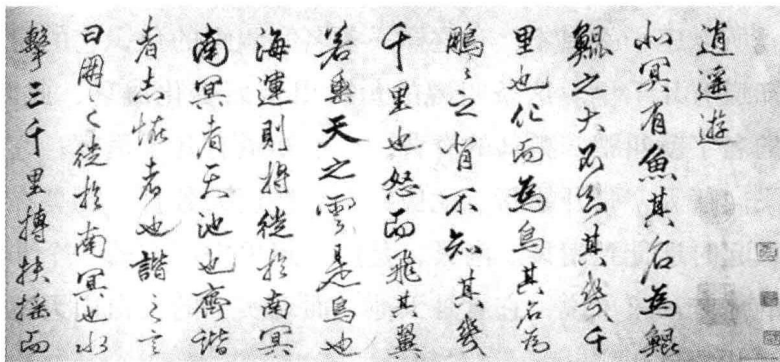 逍遥遊
北冥有魚其名為鯤
鯤之大不知其幾千
里也化而為鳥其名為
鵬々之背不知其幾
千里也怒而飛其翼
若垂天之雲是鳥也
海運則将徙於南冥
南冥者天池也齊諧
者志怪者也諧之言
曰鵬之徙於南冥也水
擊三千里摶扶揺而